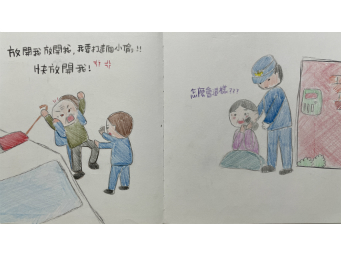 放開我放開我,我要打這個小偷!!
快放開我!
怎麼會這樣???